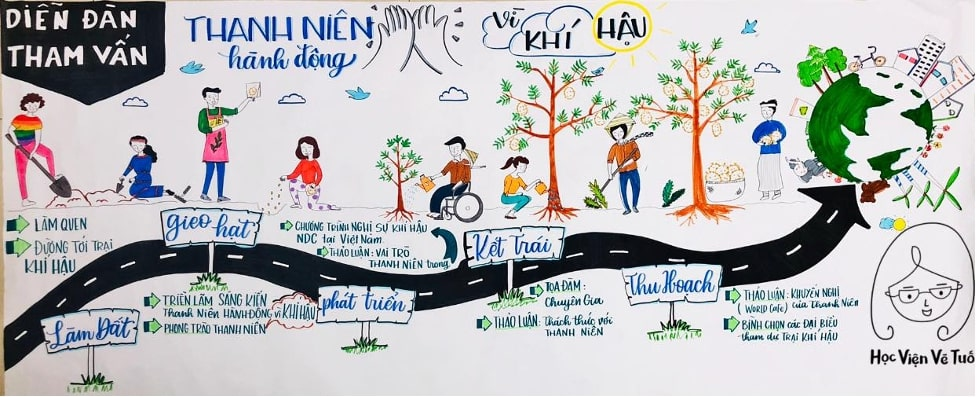 DIỄN ĐÀN
THAM VẤN
THANH NIÊN
hành động
Vì
KHÍ
HẬU
LÀM QUEN
ĐƯỜNG TỚI TRẠI
KHÍ HẬU
Làm Đất
gieo hạt
TRIỂN LÃM SÁNG KIẾN
Thanh Niên HÀNH ĐỘNG vì KHÍ HẬU
PHONG TRÀO THANH NIÊN
CHƯƠNG TRÌNH NGHỊ SỰ KHÍ HẬU
NDC tại Việt Nam
THẢO LUẬN: VAI TRÒ
THANH NIÊN trong
phát triển
Kết Trái
TỌA ĐÀM:
Chuyên Gia
THẢO LUẬN: Thách thức với
THANH NIÊN
Thu Hoạch
THẢO LUẬN: KHUYẾN NGHỊ
(WORLD Cafe) của Thanh Niên
BÌNH CHỌN các ĐẠI BIỂU
tham dự TRẠI KHÍ HẬU
Học Viện Vẽ Tuổ